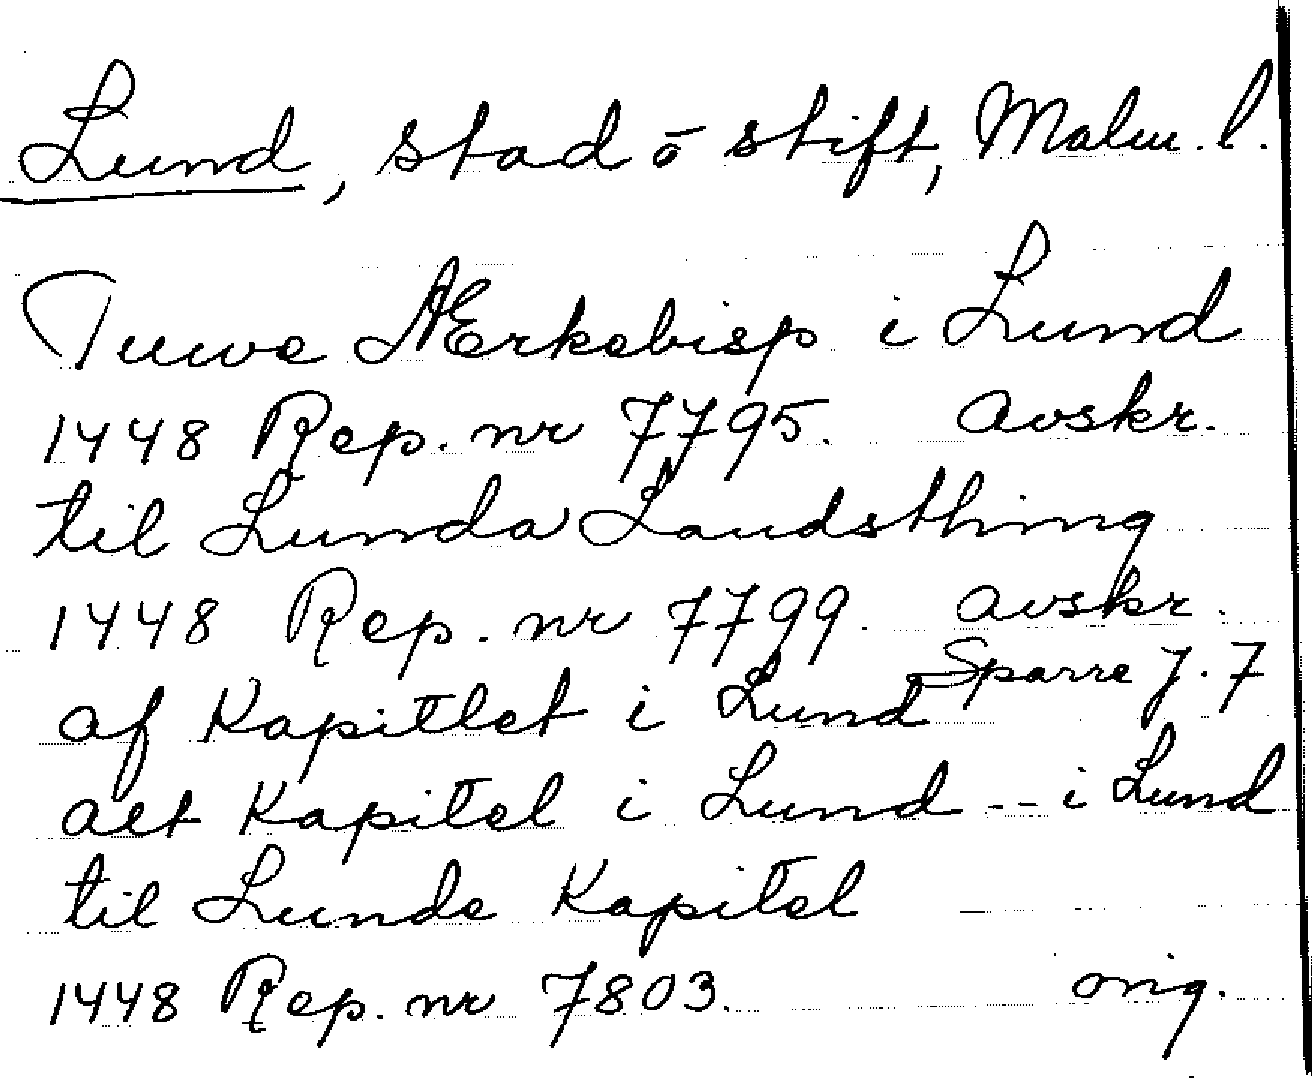 Lund, stad o stift, Malm. l.
Tuwe Ærkebisp i Lund
1448 Rep. nr 7795. avskr.
til Lunda Landsthing
1448 Rep. nr 7799. avskr.
Sparre J. 7
af Kapitlet i Lund
alt Kapitel i Lund -- i Lund
til Lunde Kapitel —
1448 Rep. nr 7803. orig.